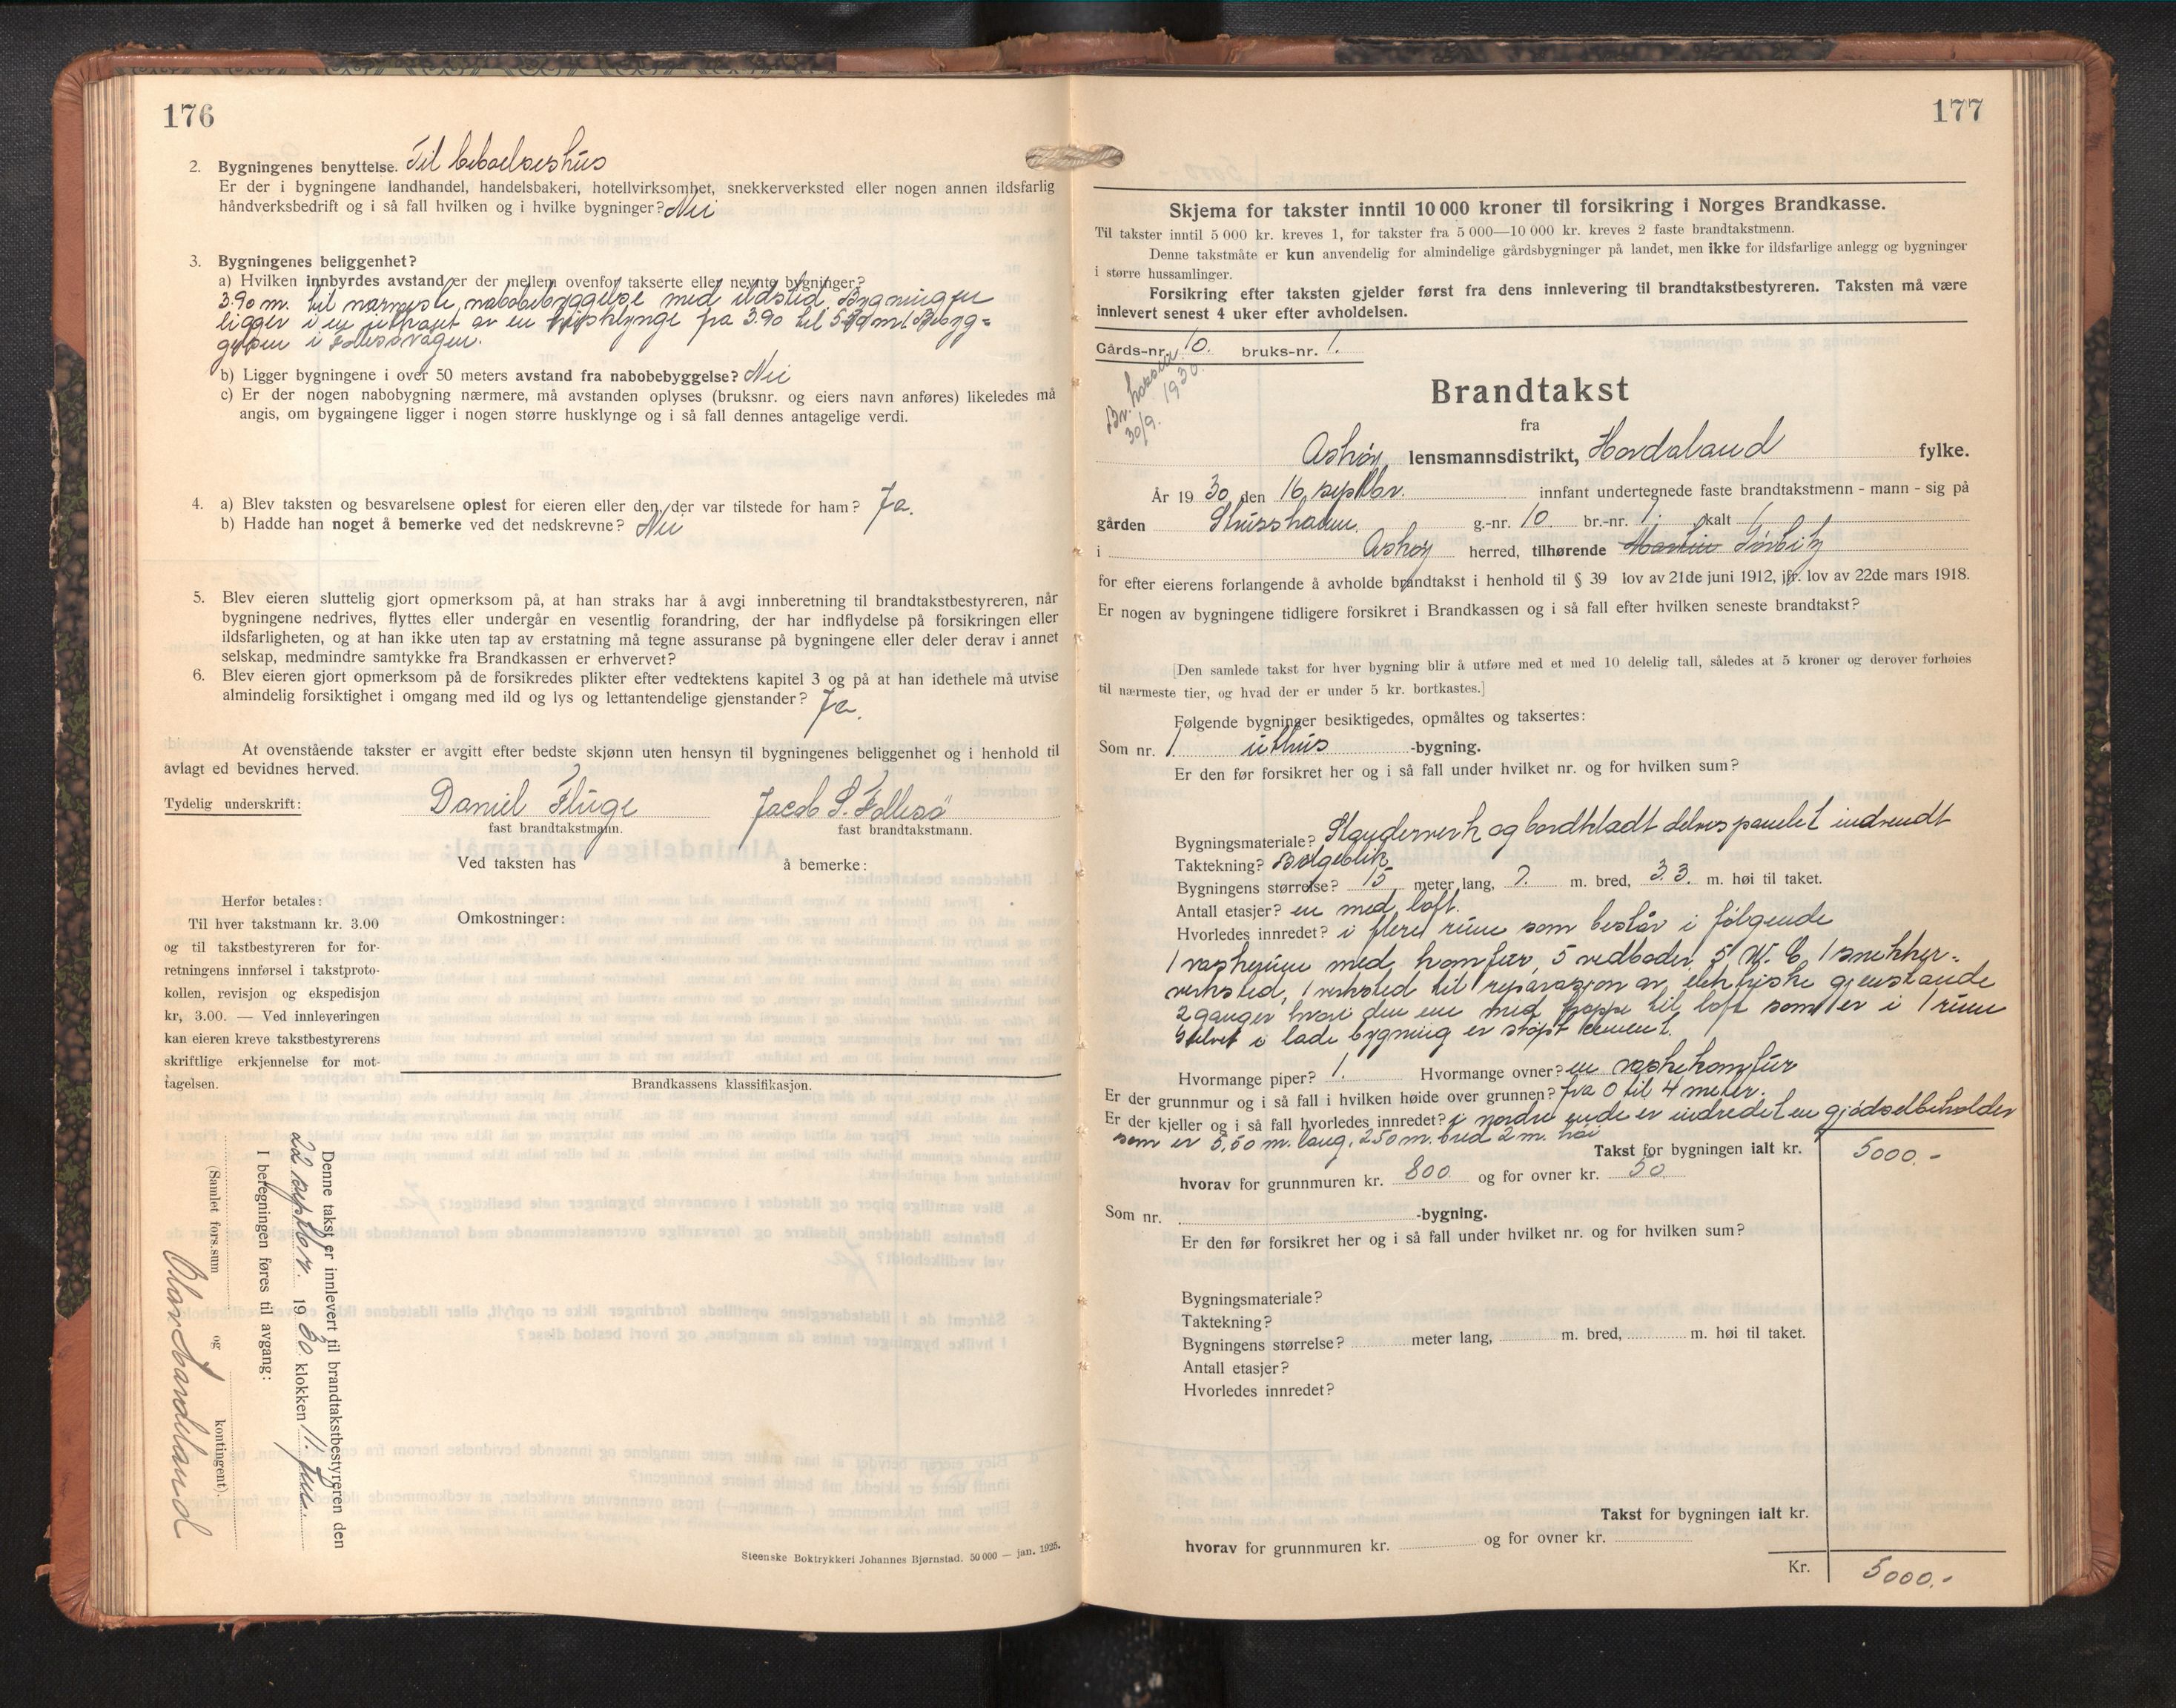 176
2. Bygningenes benyttelse. Til beboelseshus
Er der i bygningene landhandel, handelsbakeri, hotellvirksomhet, snekkerverksted eller nogen annen ildsfarlig
håndverksbedrift og i så fall hvilken og i hvilke bygninger? Nei
3. Bygningenes beliggenhet?
a) Hvilken innbyrdes avstand er der mellem ovenfor takserte eller nevnte bygninger?
3.90 m. til nærmeste nabobebyggelse med ildsted Bygningen
ligger i en utkant av en husklynge fra 3.90 til m. Bebyg-
gelsen i Follesøvågen.
b) Ligger bygningene i over 50 meters avstand fra nabobebyggelse? Nei
c) Er der nogen nabobygning nærmere, må avstanden oplyses (bruksnr. og eiers navn anføres) likeledes må
angis, om bygningene ligger i nogen større husklynge og i så fall dennes antagelige verdi.
4. a) Blev taksten og besvarelsene oplest for eieren eller den, der var tilstede for ham? Ja.
b) Hadde han noget å bemerke ved det nedskrevne? Nei
5. Blev eieren sluttelig gjort opmerksom på, at han straks har å avgi innberetning til brandtakstbestyreren, når
bygningene nedrives, flyttes eller undergår en vesentlig forandring, der har indflydelse på forsikringen eller
ildsfarligheten, og at han ikke uten tap av erstatning må tegne assuranse på bygningene eller deler derav i annet
selskap, medmindre samtykke fra Brandkassen er erhvervet?
6. Blev eieren gjort opmerksom på de forsikredes plikter efter vedtektens kapitel 3 og på at han idethele må utvise
almindelig forsiktighet i omgang med ild og lys og lettantendelige gjenstander? Ja.
At ovenstående takster er avgitt efter bedste skjønn uten hensyn til bygningenes beliggenhet og i henhold til
avlagt ed bevidnes herved.
Tydelig underskrift: Daniel Fluge Jacob S. Follesø
fast brandtakstmann. fast brandtakstmann.
Ved taksten has å bemerke:
Herfor betales:
Til hver takstmann kr. 3.00
og til takstbestyreren for for-
retningens innførsel i takstproto-
kollen, revisjon og ekspedisjon
kr, 3.00. — Ved innleveringen
kan eieren kreve takstbestyrerens
skriftlige erkjennelse for mot-
tagelsen.
Omkostninger:
Brandkassens klassifikasjon.
Denne takst er innlevert til brandtakstbestyreren den
22 septbr. 1930. klokken 11. fm.
I beregningen føres til avgang:
(Samlet fors.sum og kontingent).
Olav Aandeland
Steenske Boktrykkeri Johannes Bjørnstad. 50 000 — jan. 1925.
177
Skjema for takster inntil 10 000 kroner til forsikring i Norges Brandkasse.
Til takster inntil 5 000 kr. kreves 1, for takster fra 5 000—10 000 kr. kreves 2 faste brandtakstmenn.
Denne takstmåte er kun anvendelig for almindelige gårdsbygninger på landet, men ikke for ildsfarlige anlegg og bygninger
i større hussamlinger.
Forsikring efter taksten gjelder først fra dens innlevering til brandtakstbestyreren. Taksten må være
innlevert senest 4 uker efter avholdelsen.
Gårds-nr. 10. bruks-nr. 1.
Br. kassa
30/9. 1930.
Brandtakst
fra
Askøy lensmannsdistrikt, Hordaland fylke.
År 1930 den 16 septbr. innfant undertegnede faste brandtakstmenn - mann - sig på
gården Strusshavn g.-nr. 10. br.-nr. 1. kalt
i Askøy herred, tilhørende Martin
for efter eierens forlangende å avholde brandtakst i henhold til § 39 lov av 21de juni 1912, jfr. lov av 22de mars 1918.
Er nogen av bygningene tidligere forsikret i Brandkassen og i så fall efter hvilken seneste brandtakst?
[Den samlede takst for hver bygning blir å utføre med et med 10 delelig tall, således at 5 kroner og derover forhøies
til nærmeste tier, og hvad der er under 5 kr. bortkastes.]
Følgende bygninger besiktigedes, opmåltes og taksertes:
Som nr. 1. uthus -bygning.
Er den før forsikret her og i så fall under hvilket nr. og for hvilken sum?
Bygningsmateriale? Stenderverk og bordkladt delvis panelet indvendt
Taktekning? Bølgeblik
Bygningens størrelse? 15 meter lang, 7. m. bred, 3.3. m. høi til taket.
Antall etasjer? en med loft.
Hvorledes innredet? i flere rum som består i følgende
1 vaskerum med komfur, 5 vedboder, 5 W. C, 1 snekker-
verksted, 1 verksted til reparasjon av elektriske gjenstande
2 ganger hvori den ene med trappe til loft som er i 1 rum
Gulvet i lade bygning er støpt cement.
Hvormange piper? 1. Hvormange ovner? en vaskekomfur
Er der grunnmur og i så fall i hvilken høide over grunnen? fra 0 til 4 meter.
Er der kjeller og i så fall hvorledes innredet? i nordre ende er indredet en gjødselbeholder
som er 5,50 m. lang, 2.50 m. bred 2 m. høi
Takst for bygningen ialt kr. 5000.-
hvorav for grunnmuren kr. 800. og for ovner kr. 50.
Som nr. -bygning.
Er den før forsikret her og i så fall under hvilket nr. og for hvilken sum?
Bygningsmateriale?
Taktekning?
Bygningens størrelse? meter lang, m. bred, m. høi til taket.
Antall etasjer?
Hvorledes innredet?
Takst for bygningen ialt kr.
hvorav for grunnmuren kr. og for ovner kr.
Kr. 5000.-